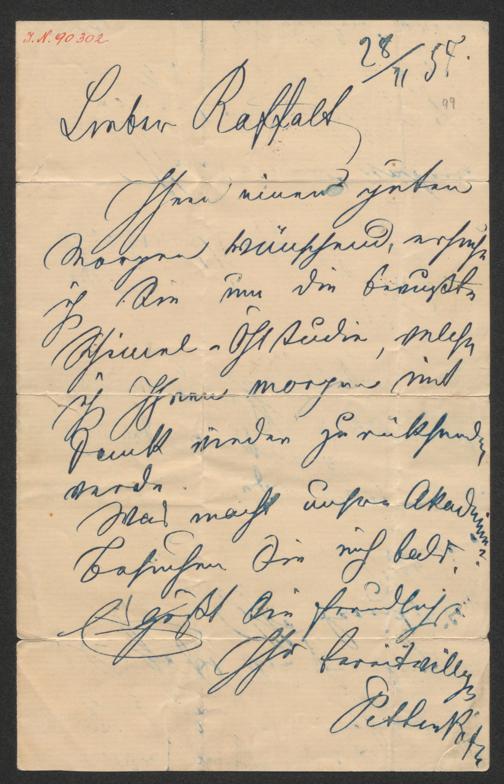 I.N. 90302
28/11 54.
99
Lieber Raffalt
Ihnen einen guten
Morgen wünschend, ersuche
ich Sie um die bewußte
Schimel-Öhlstudie, welche
ich Ihnen morgen mit
Dank wieder zurüksenden
werde.
Was macht unsere Akademie?
Besuchen Sie mich bald.
Es grüßt Sie freundlich
Ihr bereitwilliger
Pettenkofen